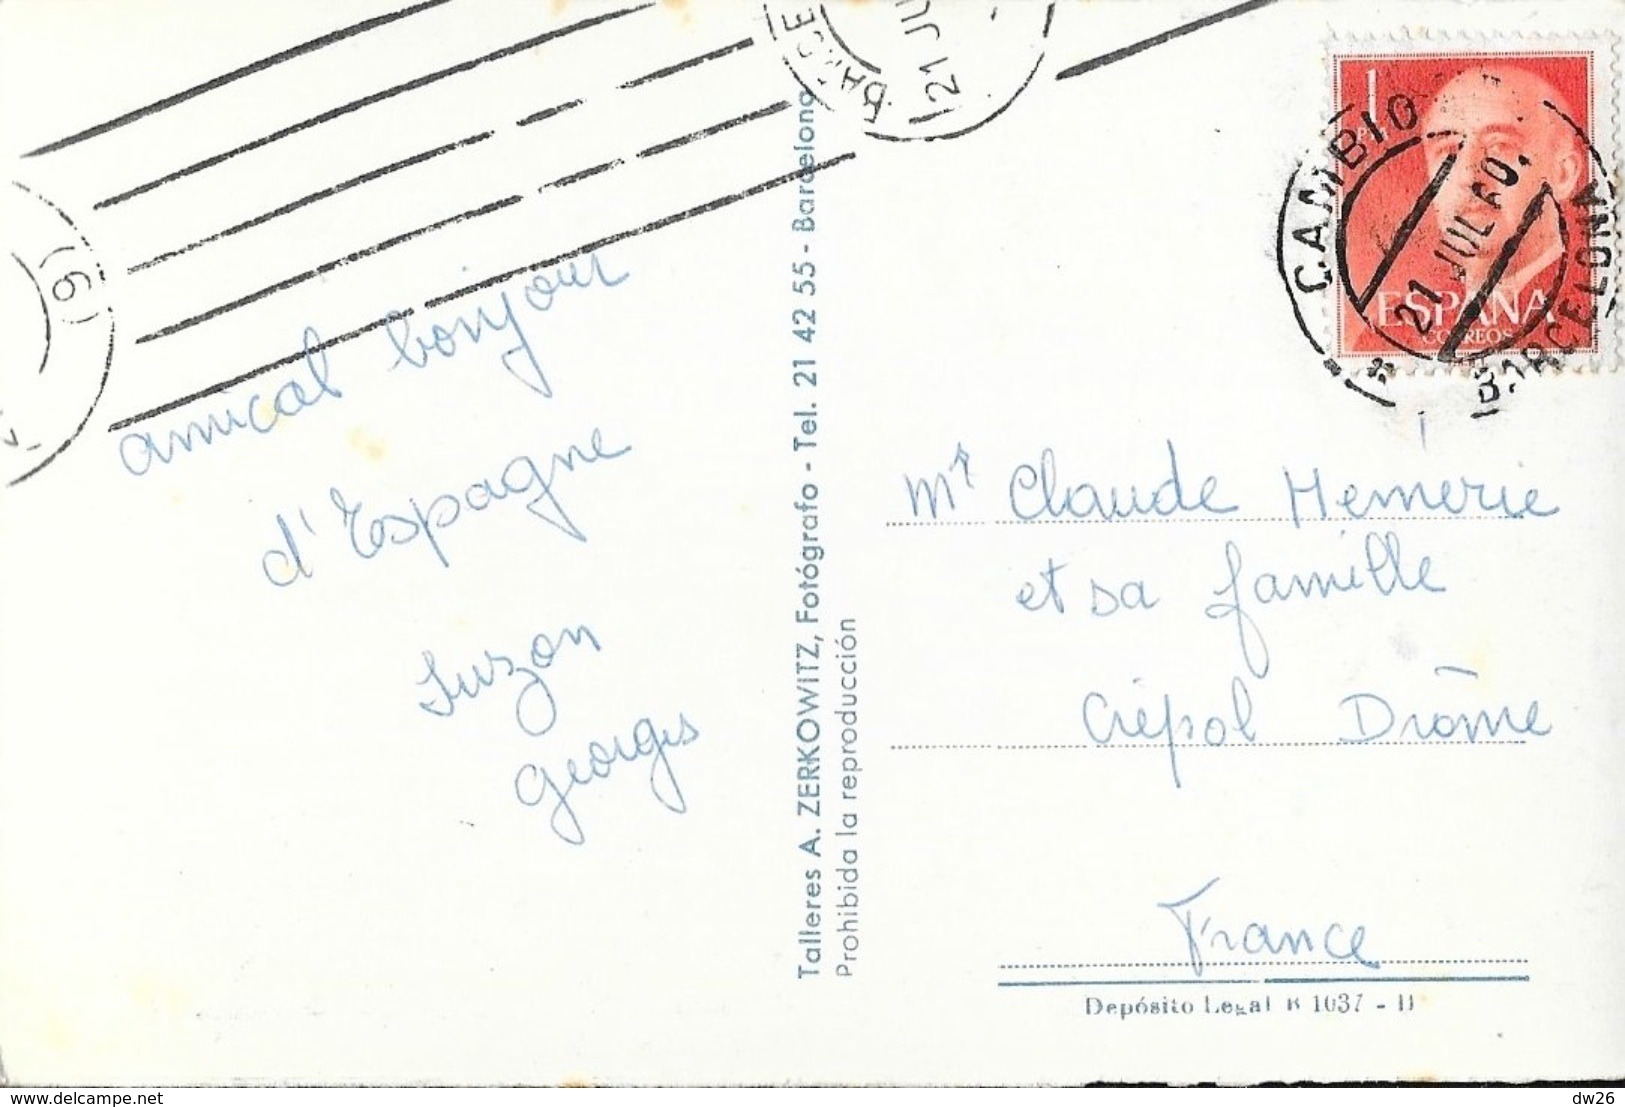 BARCE
21 JU
(9)
1
C.AMBIO
21 JUL 60.
BARCELONA
ESPAÑA
CORREOS
amical bonjour
d'Espagne
Suzon
Georges
Talleres A. ZERKOWITZ, Fotógrafo - Tel. 21 42 55 - Barcelona
Prohibida la reproducción
Mr Claude Hemerie
et sa famille
Crépol Drôme
France
Depósito Legal B 1037 - II
www.delcampe.net
dw26